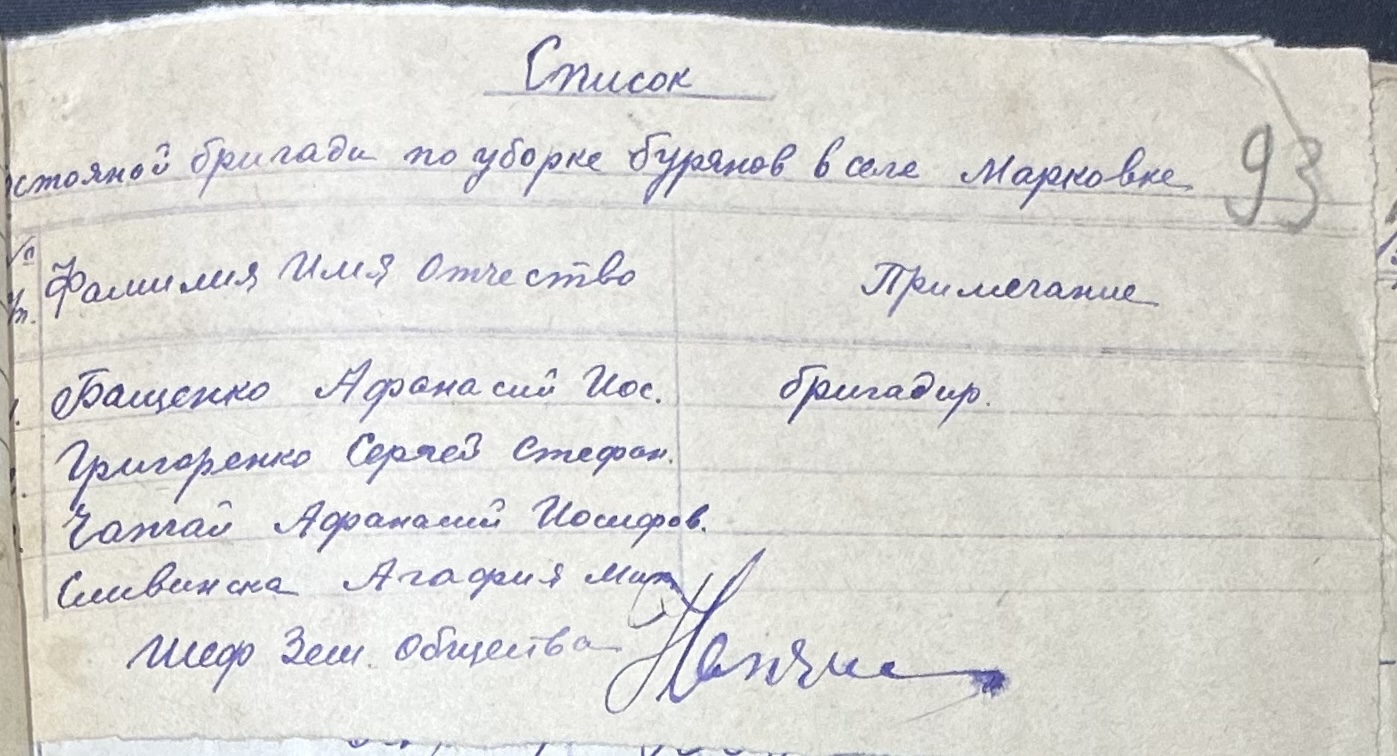 Список
стояной бригади по уборке бурянов в селе Марковке
93
Фамилия Имя Отчество Примечание
Бащенко Афанасий Иос. бригадир.
Григоренко Сергей Стефан.
Афанасий Иосифов.
Сливинска Агафия Мих
Шеф Зем. Общества